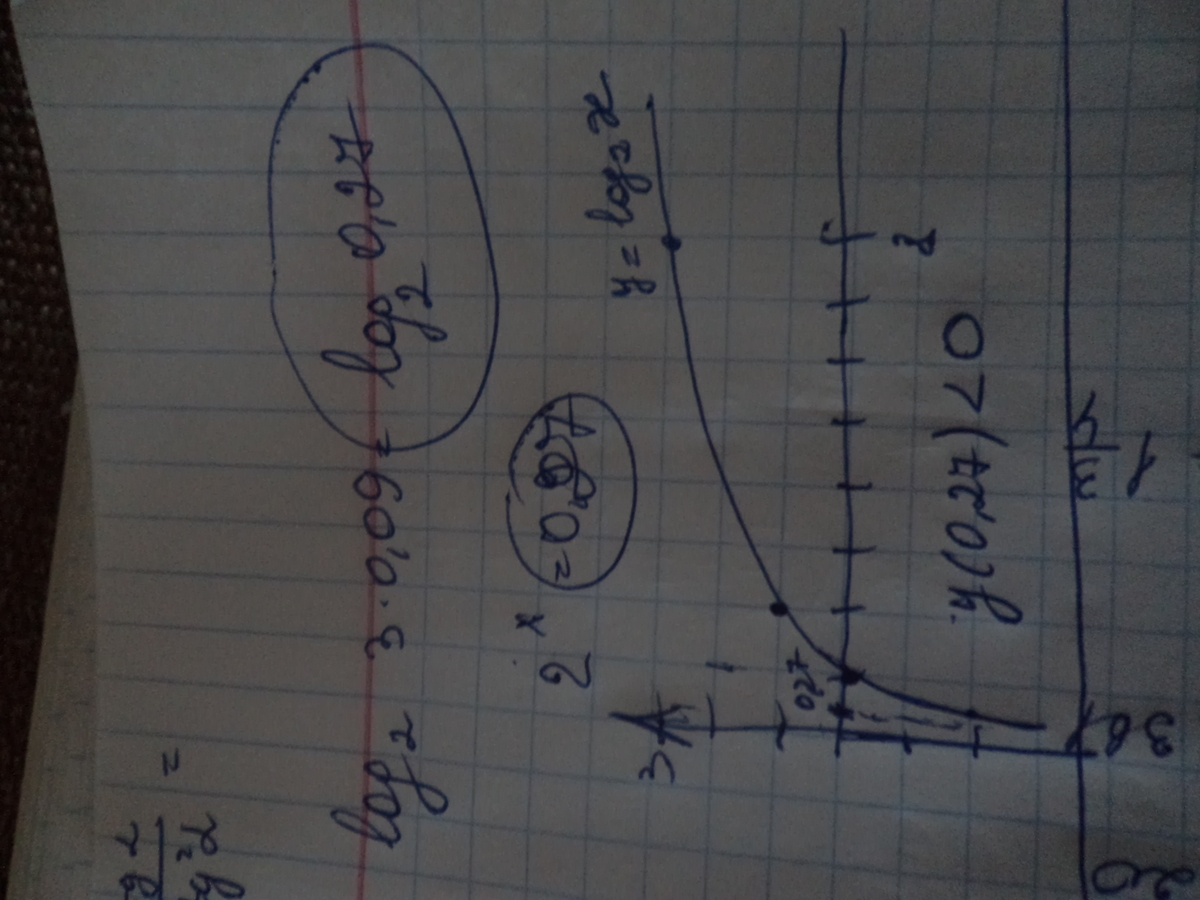 log₂ 3·0,09 = log₂ 0,27
2ˣ
y = log₂ x
3
0,27
8
y(0,27) < 0